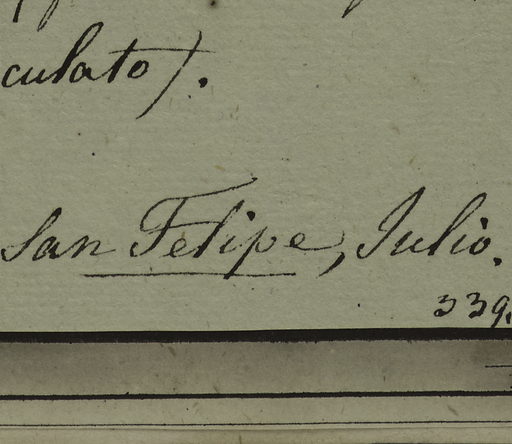 culato).
San Felipe, Julio.
339.